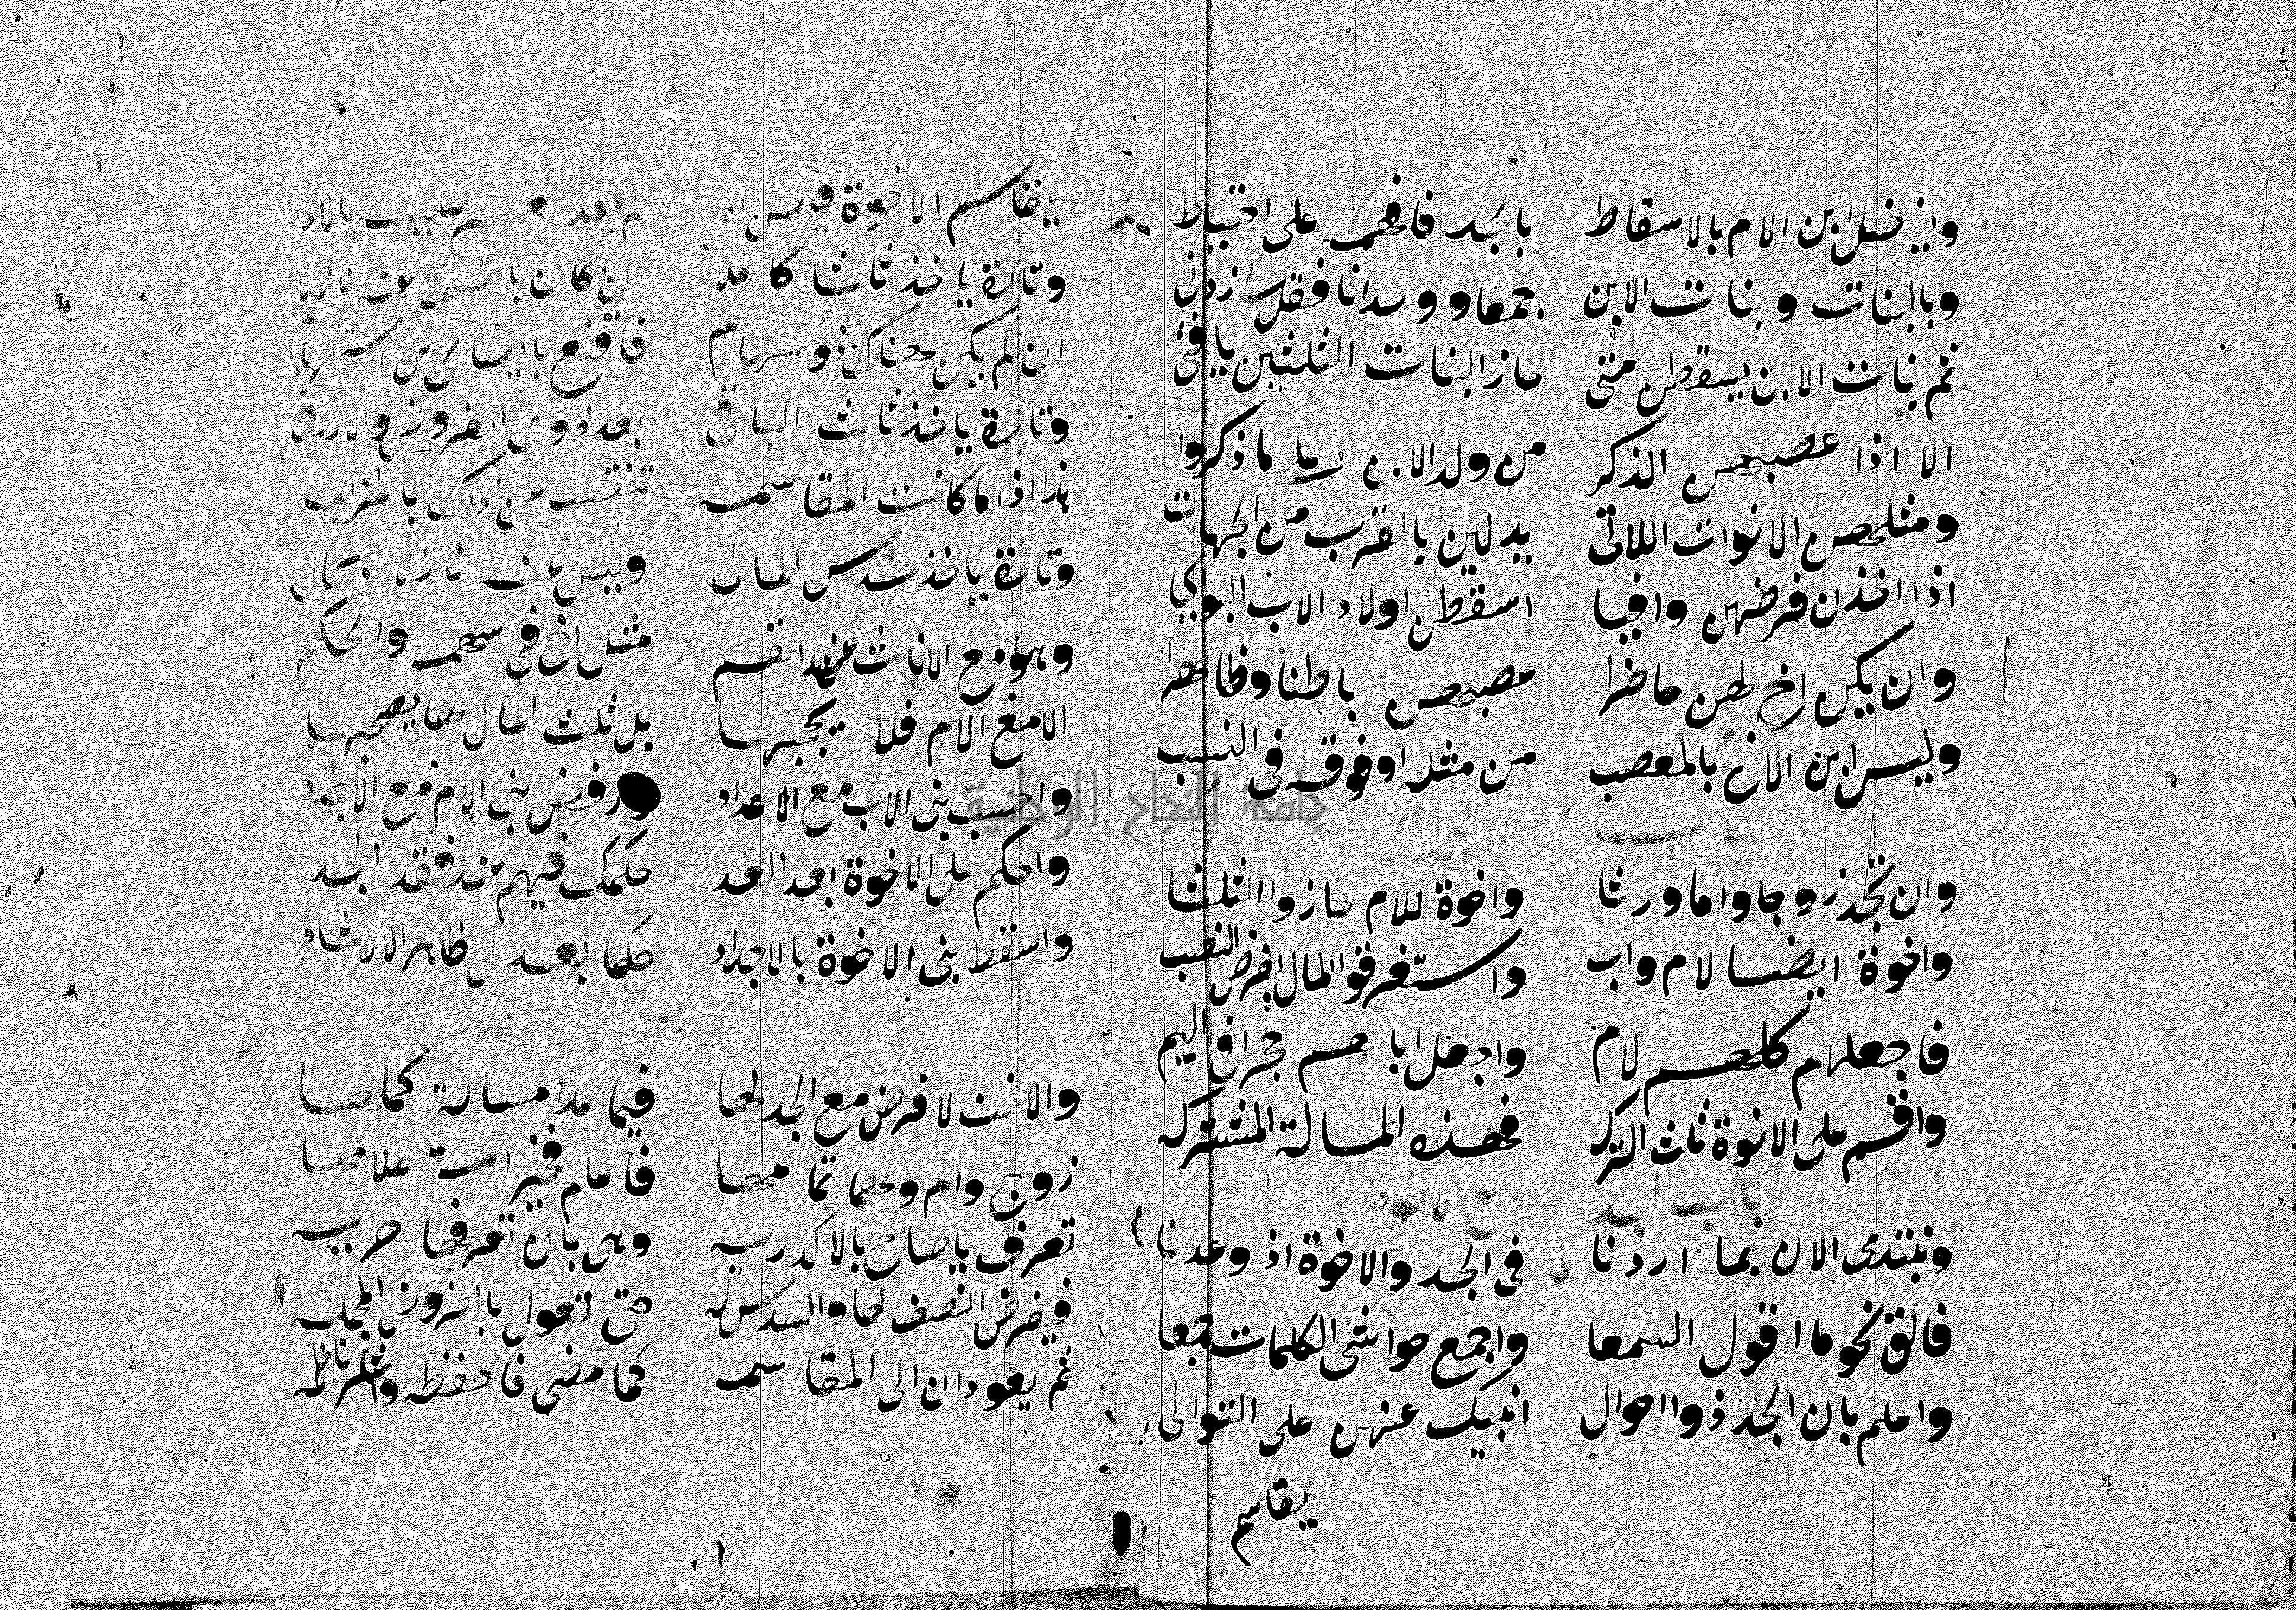 ويفضل ابن الام بالاسقاط بالجد فافهمه على احتياط
وبالبنات وبنات الابن جمعا ووحدانا فقل زدني
ثم بنات الابن يسقطن متى حاز البنات الثلثين يا فتى
الا اذا عصبهن الذكر من ولد الابن على ما ذكروا
ومثلهن الاخوات اللاتي يدلين بالقرب من الجهات
اذا اخذن فرضهن وافيا اسقطن اولاد الاب البواكيا
وان يكن اخ لهن حاضرا عصبهن باطنا وظاهرا
وليس ابن الاخ بالمعصب من مثله او فوقه في النسب
باب
وان تجد زوجا واما ورثا واخوة للام حازوا الثلثا
واخوة ايضا لام واب واستغرقوا المال بفرض النصب
فاجعلهم كلهم لام واجعل اباهم حجرا في اليم
واقسم على الاخوة ثلث التركه فهذه المسالة المشتركه
باب الجد مع الاخوة
ونبتدى الان بما اردنا في الجد والاخوة اذ وعدنا
فالق نحو ما اقول السمعا واجمع حواشى الكلمات جمعا
واعلم بان الجد ذو احوال انبيك عنهن على التوالى
يقاسم
يقاسم الاخوة فيهن اذا لم يعد القسم عليه بالاذا
وتارة ياخذ ثلثا كاملا ان كان بالقسمة عنه نازلا
ان لم يكن هناك ذو سهام فاقنع بايضاحى عن استفهام
وتارة ياخذ ثلث الباقى بعد ذوى الفروض والارزاق
هذا اذا ما كانت المقاسمه تنقصه عن ذاك بالمزاحمه
وتارة ياخذ سدس المال وليس عنه نازلا بحال
وهو مع الاناث عند القسم مثل اخ فى سهمه والحكم
الا مع الام فلا يحجبها بل ثلث المال لها يصحبها
واحسب بنى الاب مع الاعداد وارفض بنى الام مع الاجداد
واحكم على الاخوة بعد العد حكمك فيهم عند فقد الجد
واسقط بنى الاخوة بالاجداد حكما بعدل ظاهر الارشاد
والاخت لا فرض مع الجد لها فيما عدا مسالة كملها
زوج وام وهما تمامها فاعلم فخير امة علامها
تعرف يا صاح بالاكدريه وهى بان تعرفها حريه
فيفرض النصف لها والسدس له حتى تعول بالفروض المجمله
ثم يعودان الى المقاسمه كما مضى فاحفظه واشكر ناظمه